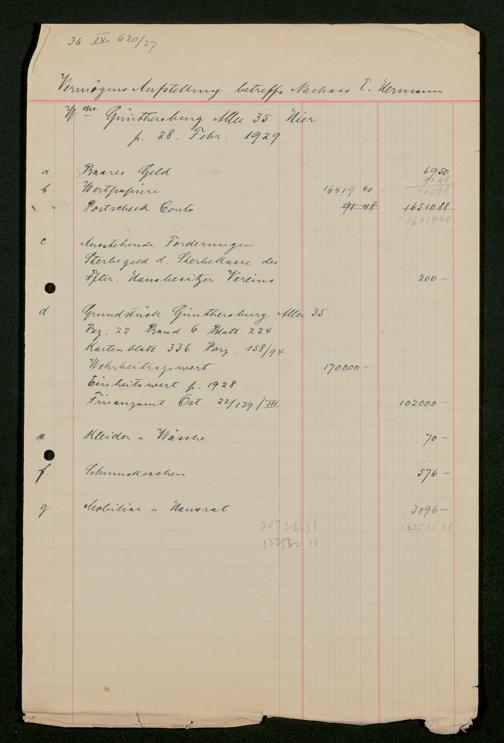 36 IX 620/27
Vermögens Aufstellung betreffs Nachass E. Hermann
Wwe Günthersburg Allee 35 Hier
p. 28. Febr. 1929
a Baares Geld 69 50
91 48
b Wertpapiere 16419 40 -
Postscheck Conto 91 48 16510 88
16419 40
c Ausstehende Forderungen
Sterbegeld d. Sterbekasse des
Hausbesitzer Vereins 200 -
d Grundstück Günthersburg Allee 35
Bez. 22 Band 6 Blatt 224
Kartenblatt 336 Parz. 158/94
Wehrbeitragswert 170000 -
Einheitswert p. 1928
Finanzamt Ost 22/139/III 102000 -
Kleider u Wäsche 70 -
f. Schmucksachen 576 -
g Mobiliar u Hausrat 3096 -
30722.38